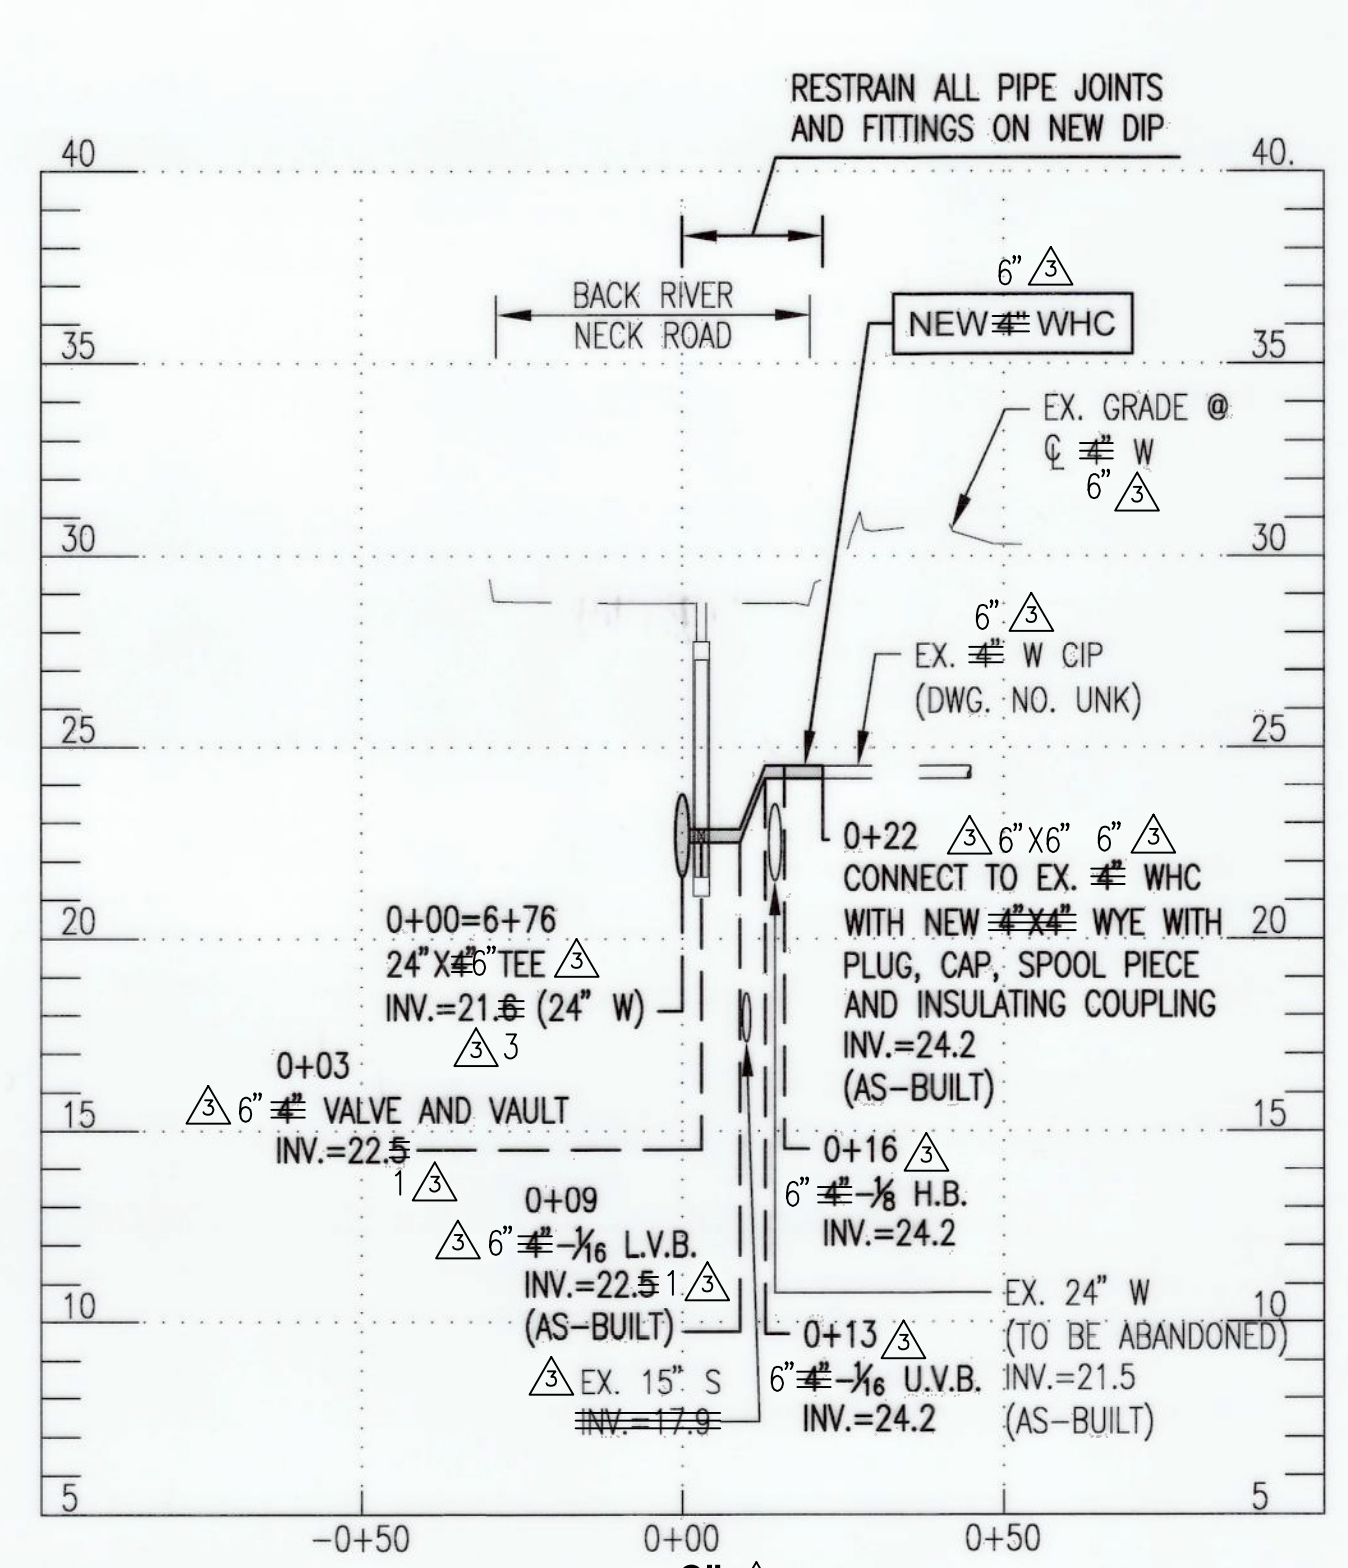 RESTRAIN ALL PIPE JOINTS
AND FITTINGS ON NEW DIP
40
40.
BACK RIVER
NECK ROAD
6" 3
NEW 4" WHC
35
35
EX. GRADE @
℄ 4" W
6" 3
30
30
6" 3
EX. 4" W CIP
(DWG. NO. UNK)
25
25
0+22 3 6"X6" 6" 3
CONNECT TO EX. 4" WHC
WITH NEW 4"X4" WYE WITH
PLUG, CAP, SPOOL PIECE
AND INSULATING COUPLING
INV.=24.2
(AS-BUILT)
20
20
0+00=6+76
24"X4"6"TEE 3
INV.=21.6 (24" W)
3 3
0+03
3 6" 4" VALVE AND VAULT
INV.=22.5
1 3
15
15
0+16 3
6" 4"-1/8 H.B.
INV.=24.2
0+09
3 6" 4"-1/16 L.V.B.
INV.=22.5 1 3
(AS-BUILT)
10
10
EX. 24" W
(TO BE ABANDONED)
INV.=21.5
(AS-BUILT)
0+13 3
6" 4"-1/16 U.V.B.
INV.=24.2
3 EX. 15" S
INV.=17.9
5
5
-0+50
0+00
0+50